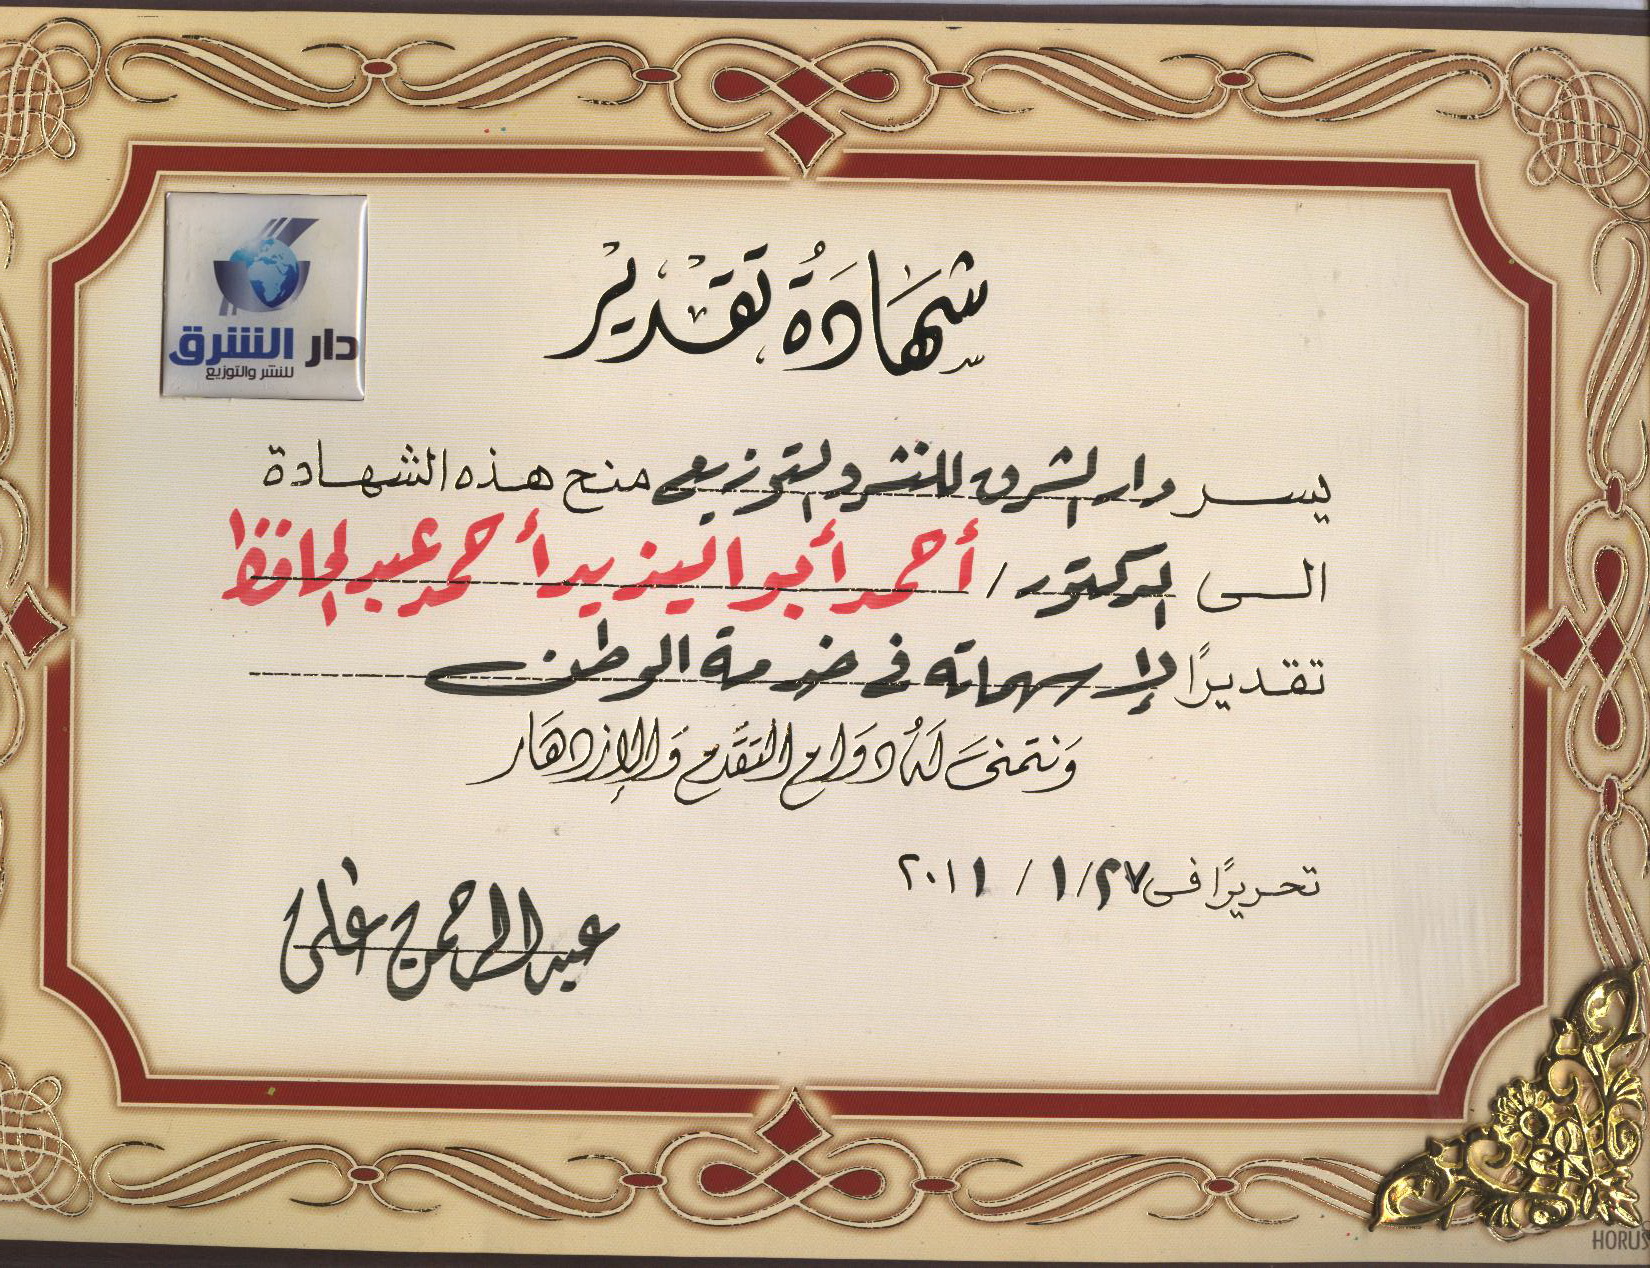 دار الشرق
للنشر والتوزيع
شهادة تقدير
يسر دار الشرق للنشر والتوزيع منح هذه الشهادة
الى الدكتور / أحمد أبو اليزيد أحمد عبد الحافظ
تقديرًا لإسهماته فى خدمة الوطن
ونتمنى له دوام التقدم والإزدهار
تحريرًا فى ٢٧ / ١ / ٢٠١١
عبد الرحمن على
HORUS